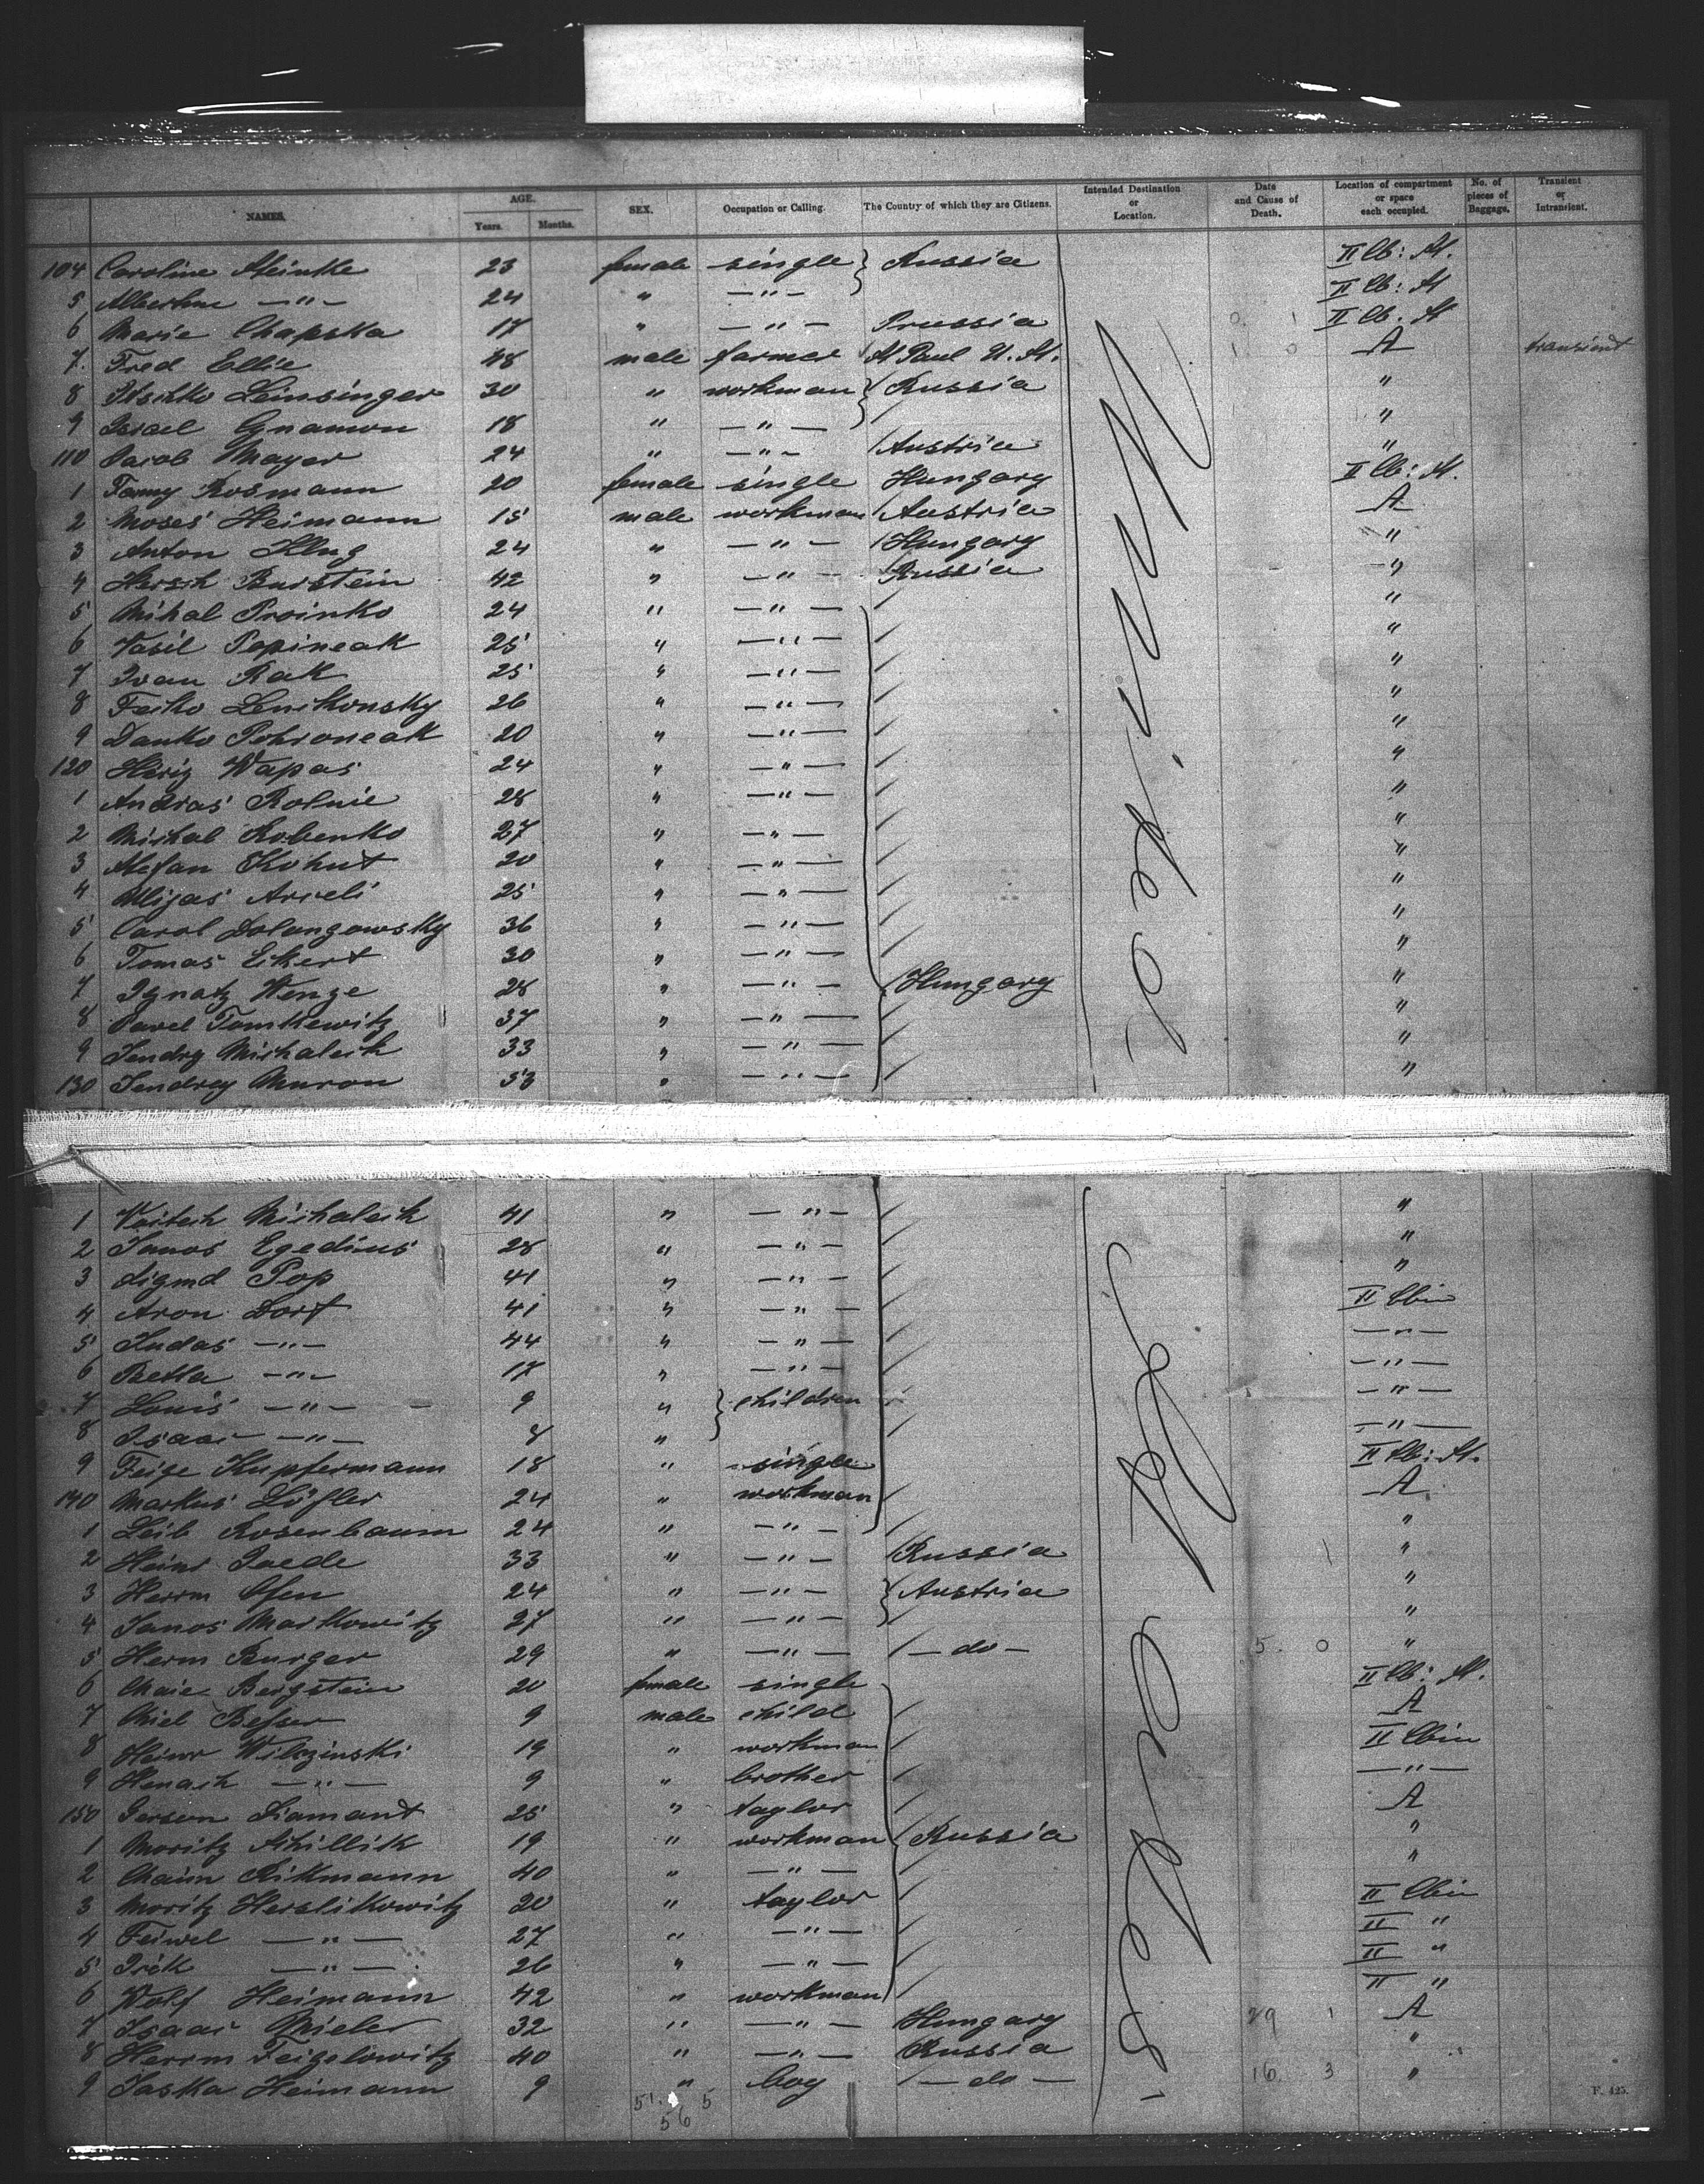 NAMES. AGE. Years. Months. SEX. Occupation or Calling. The Country of which they are Citizens. Intended Destination or Location. Date and Cause of Death. Location of compartment or space each occupied. No. of pieces of Baggage. Transient or Intransient.
104 Caroline 23 female single } Russia II Cb: St.
5 Albertine —"— 24 " —"— II Cb: St
6 Marie Chapska 17 " —"— Prussia 0 1 II Cb. St
7. Fred Ellie 48 male farmer St Paul U. St. 1 0 A transient
8 Leinsinger 30 " workman { Russia "
9 Israel Gnamon 18 " —"— "
110 Jacob Mayer 24 " —"— Austria "
1 Fanny Rosmann 20 female single Hungary II Cb: St.
2 Moses Heimann 15 male workman Austria A
3 Anton Klug 24 " —"— Hungary "
4 Hersch Burstein 42 " —"— Russia "
5 Mihal Proinko 24 " —"— "
6 Vasil Popineak 25 " —"— "
7 Ivan Rak 25 " —"— "
8 Feiko 26 " —"— "
9 Danko Pohroneak 20 " —"— "
120 Wapas 24 " —"— "
1 Andras Rolnie 28 " —"— "
2 Michal Kobenko 27 " —"— "
3 Stefan Kohut 20 " —"— "
4 25 " —"— "
5 Carol Dolangowsky 36 " —"— "
6 Tomas Eikert 30 " —"— "
7 Ignatz Wenze 28 " —"— Hungary "
8 Pavel Tomkewitz 37 " —"— "
9 Jendry Michalcik 33 " —"— "
130 Jendrey Muron 53 " —"— "
1 Voitech Michalcik 41 " —"— "
2 Janos Egedius 28 " —"— "
3 Sigmd Pop 41 " —"— "
4 Aron Dorf 41 " —"— II Cbin
5 Judas —"— 44 " —"— —"—
6 —"— 17 " —"— —"—
7 Louis —"— 9 " } children —"—
8 Isaac —"— 8 " —"—
9 Feige Kupfermann 18 " single II Cb: St.
140 Markus Löfler 24 " workman A
1 Leib Rosenbaum 24 " —"— "
2 Heinr 33 " —"— Russia 1 "
3 Herrm Ofen 24 " —"— { Austria "
4 Janos Markowitz 27 " —"— "
5 Herm Burger 29 " —"— —do— 5. 0 "
6 Chaie Bergstein 20 female single II Cb: St.
7 Chiel Besser 9 male child A
8 Heinr Wilczinski 19 " workman II Cbin
9 Henach —"— 9 " brother —"—
150 Gerson Diamant 25 " taylor A
1 Moritz 19 " workman Russia "
2 Chaim Rikmann 40 " —"— "
3 Moritz Herslikowitz 20 " taylor II Cbin
4 Feiwel —"— 27 " —"— II "
5 —"— 26 " —"— II "
6 Wolf Heimann 42 " workman II "
7 Isaac Mieler 32 " —"— Hungary 29 1 A
8 Herrm Feigelowitz 40 " —"— Russia "
9 Jaska Heimann 9 " boy —do— 16. 3 "
51. 5
56
F. 425.